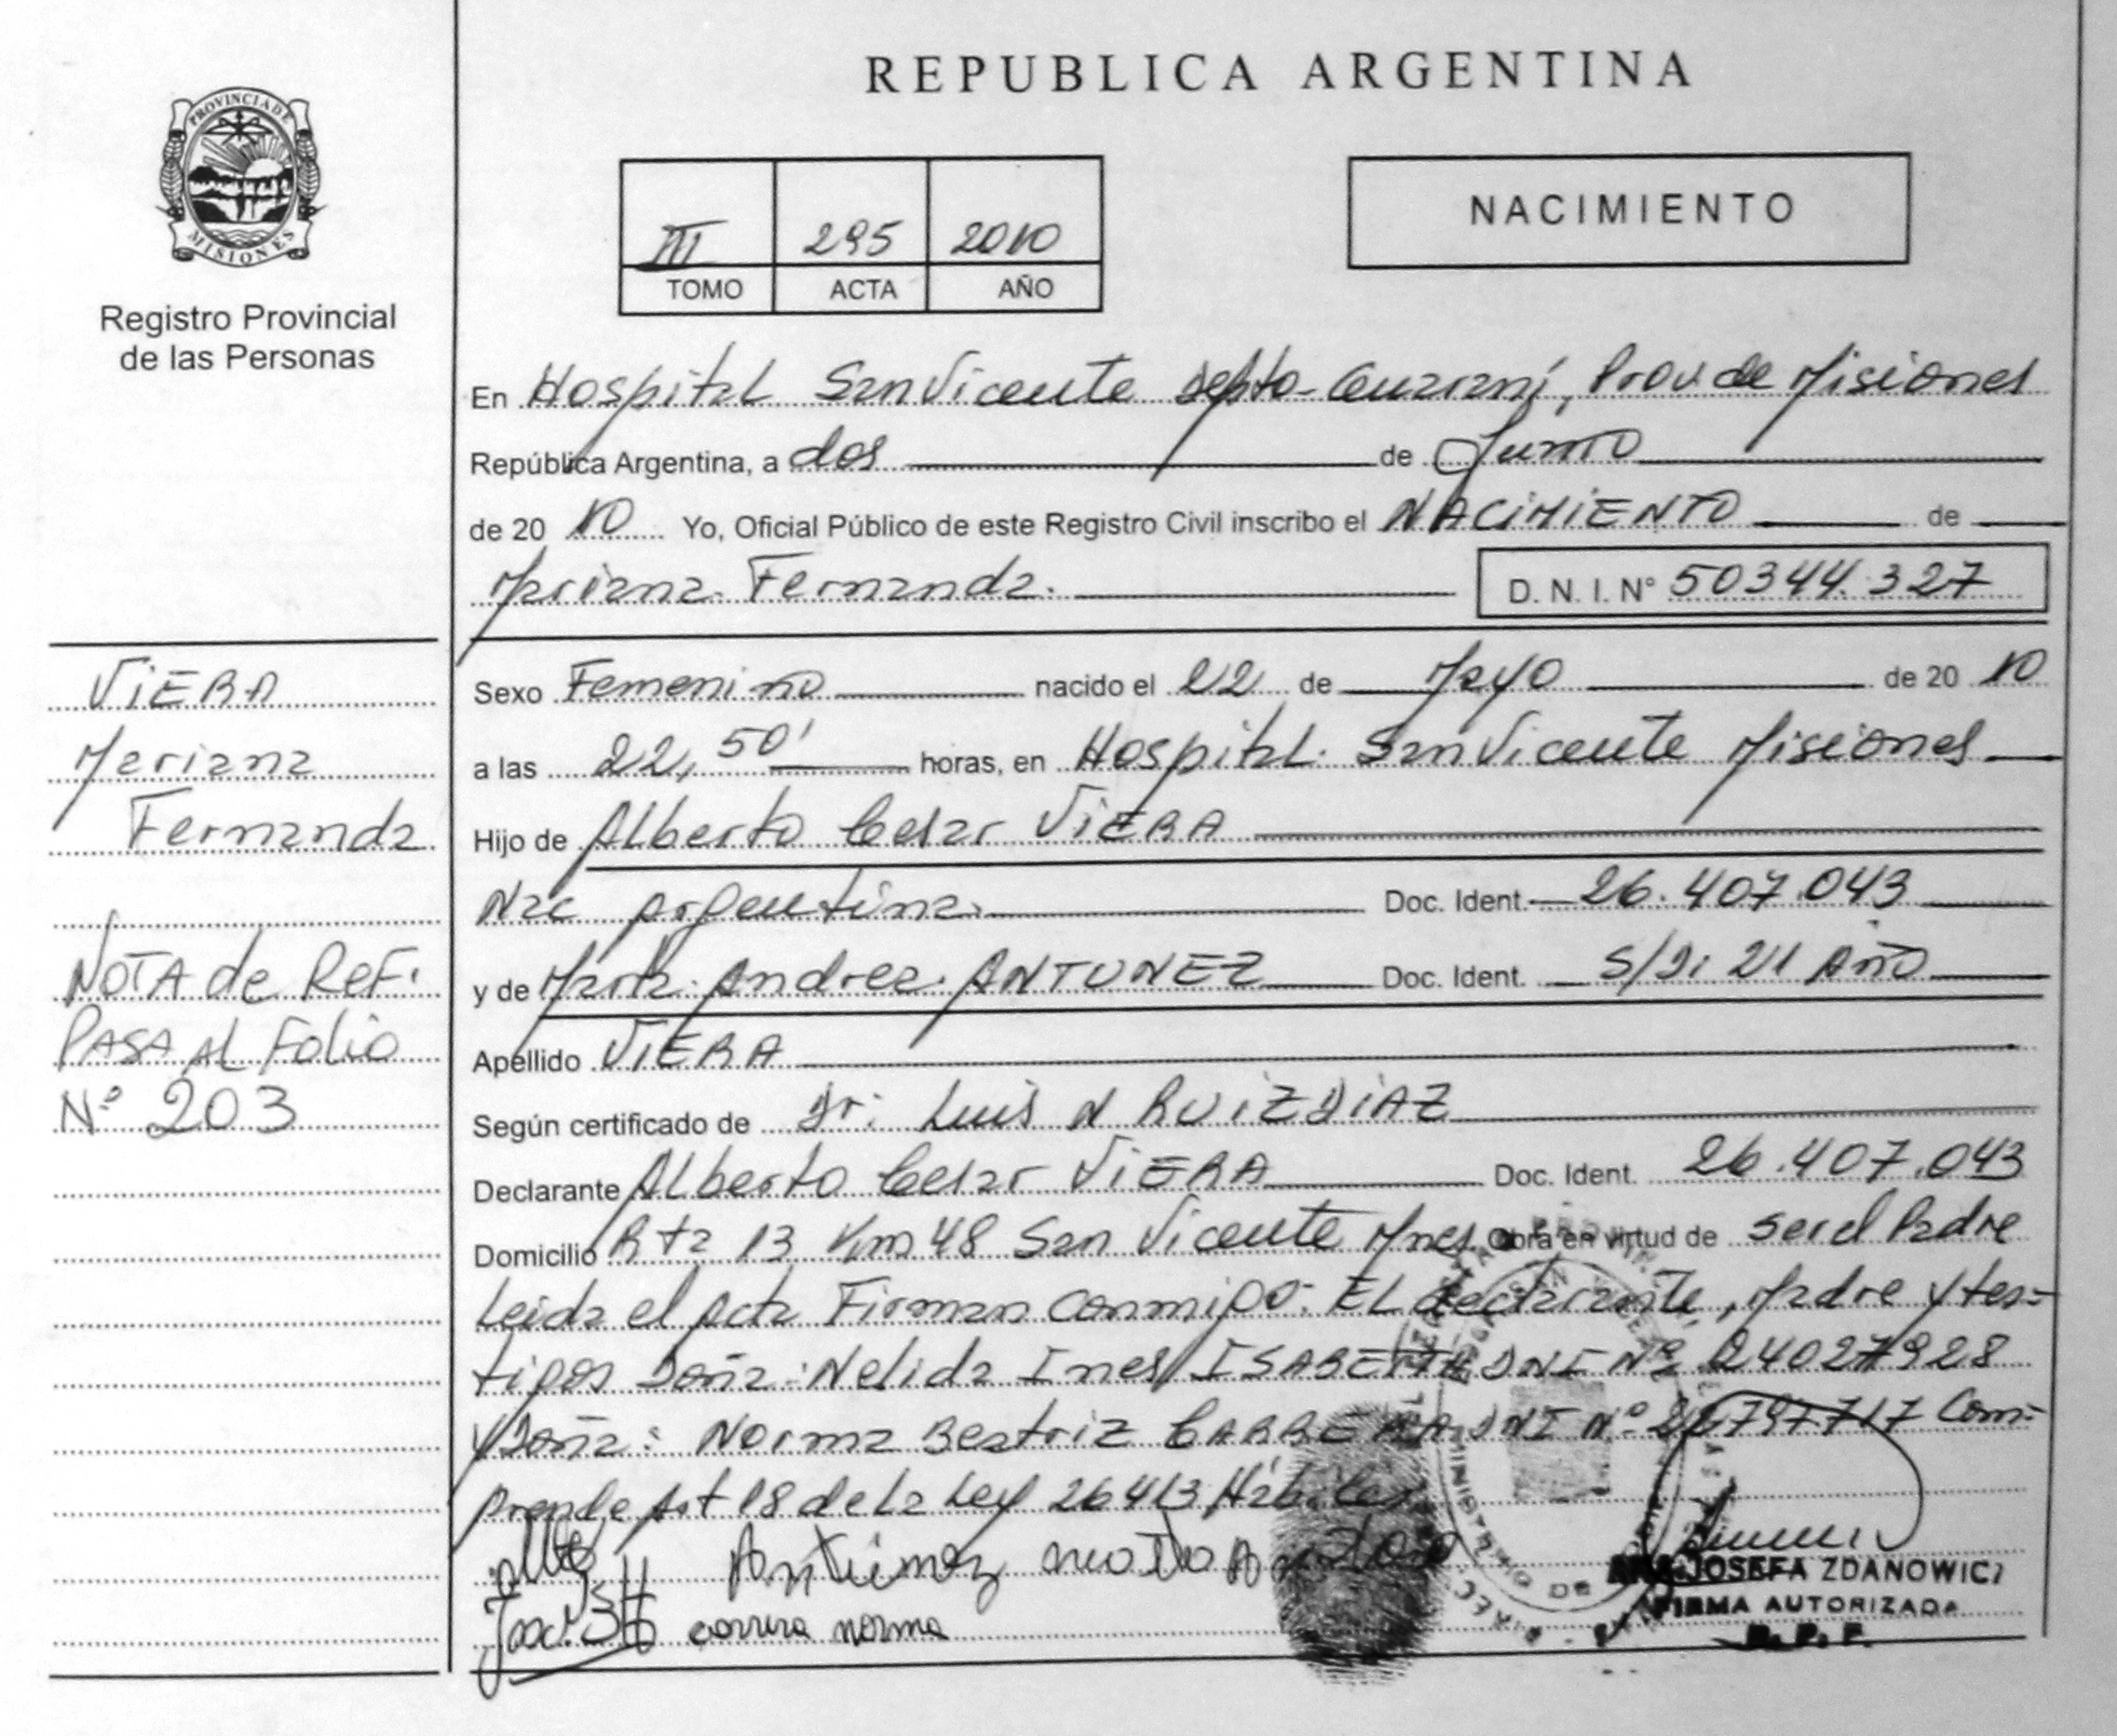 REPUBLICA ARGENTINA
PROVINCIA DE
MISIONES
Registro Provincial
de las Personas
III 295 2010
TOMO ACTA AÑO
NACIMIENTO
En Hospital San Vicente Depto-Guarani, Prov de Misiones
República Argentina, a dos de Junio
de 20 10 Yo, Oficial Público de este Registro Civil inscribo el NACIMIENTO de
Mariana Fernanda. D. N. I. N° 50344.327
VIERA
Mariana
Fernanda
NOTA de REF.
PASA AL Folio
N° 203
Sexo Femenino nacido el 22 de Mayo de 20 10
a las 22, 50' horas, en Hospital San Vicente Misiones
Hijo de Alberto Cesar VIERA
Nac Argentina. Doc. Ident. 26.407.043
y de Marta Andrea ANTUNEZ Doc. Ident. S/D: 21 Año
Apellido VIERA
Según certificado de Dr: Luis A RUIZ DIAZ
Declarante Alberto Cesar VIERA Doc. Ident. 26.407.043
Domicilio Rta 13 Km 48 San Vicente Mnes Obra en virtud de ser el Padre
Leida el Acta Firman Conmigo: EL declarante, Madre y tes-
tigos Doña: Nelida Ines DNI N° 24027928
y Doña: Norma Beatriz CARRERA DNI N° Com-
prende Art 18 de la Ley 26413 Hábiles
Antunez
correra norma
ANA JOSEFA ZDANOWICZ
FIRMA AUTORIZADA
R. P. P.